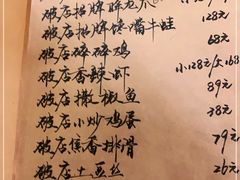 破店招牌
128元
破店招牌馋嘴牛蛙
68元
破店碎碎鸡
小128元/大168
破店香辣虾
89元
破店撒椒鱼
38元
破店小炒鸡蛋
79元
破店酱香排骨
26元
破店土豆丝